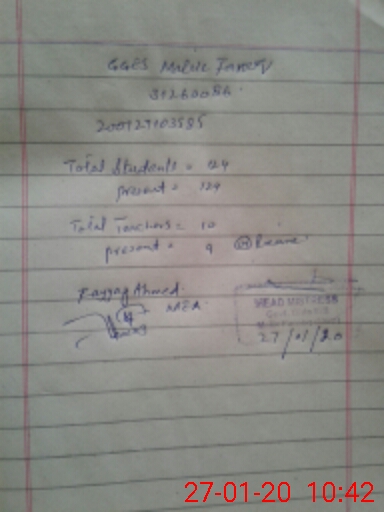 GGES Malik Farooq
31260086
Total Students = 124
present = 124
Total Teachers = 10
present = 9
Razzaq Ahmed
MEA
HEAD MISTRESS
27/01/20
27-01-20 10:42